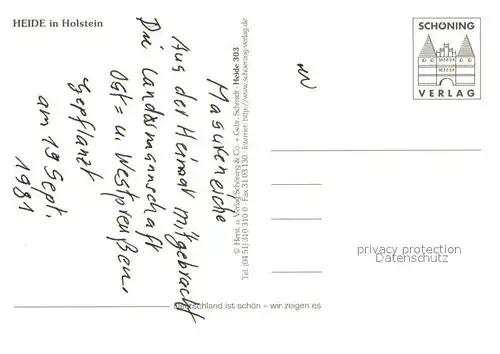 HEIDE in Holstein
Masureneiche
Aus der Heimat mitgebracht
Die Landsmannschaft
Ost= u. Westpreußen.
gepflanzt
am 19 Sept.
1981
© Herst. u. Verlag Schöning & Co. + Gebr. Schmidt
Heide 303
Tel. (04 51) 310 310 0 · Fax 31 03 130 · Internet: http://www.schoening-verlag.de
Deutschland ist schön – wir zeigen es
SCHÖNING
VERLAG
privacy protection
Datenschutz